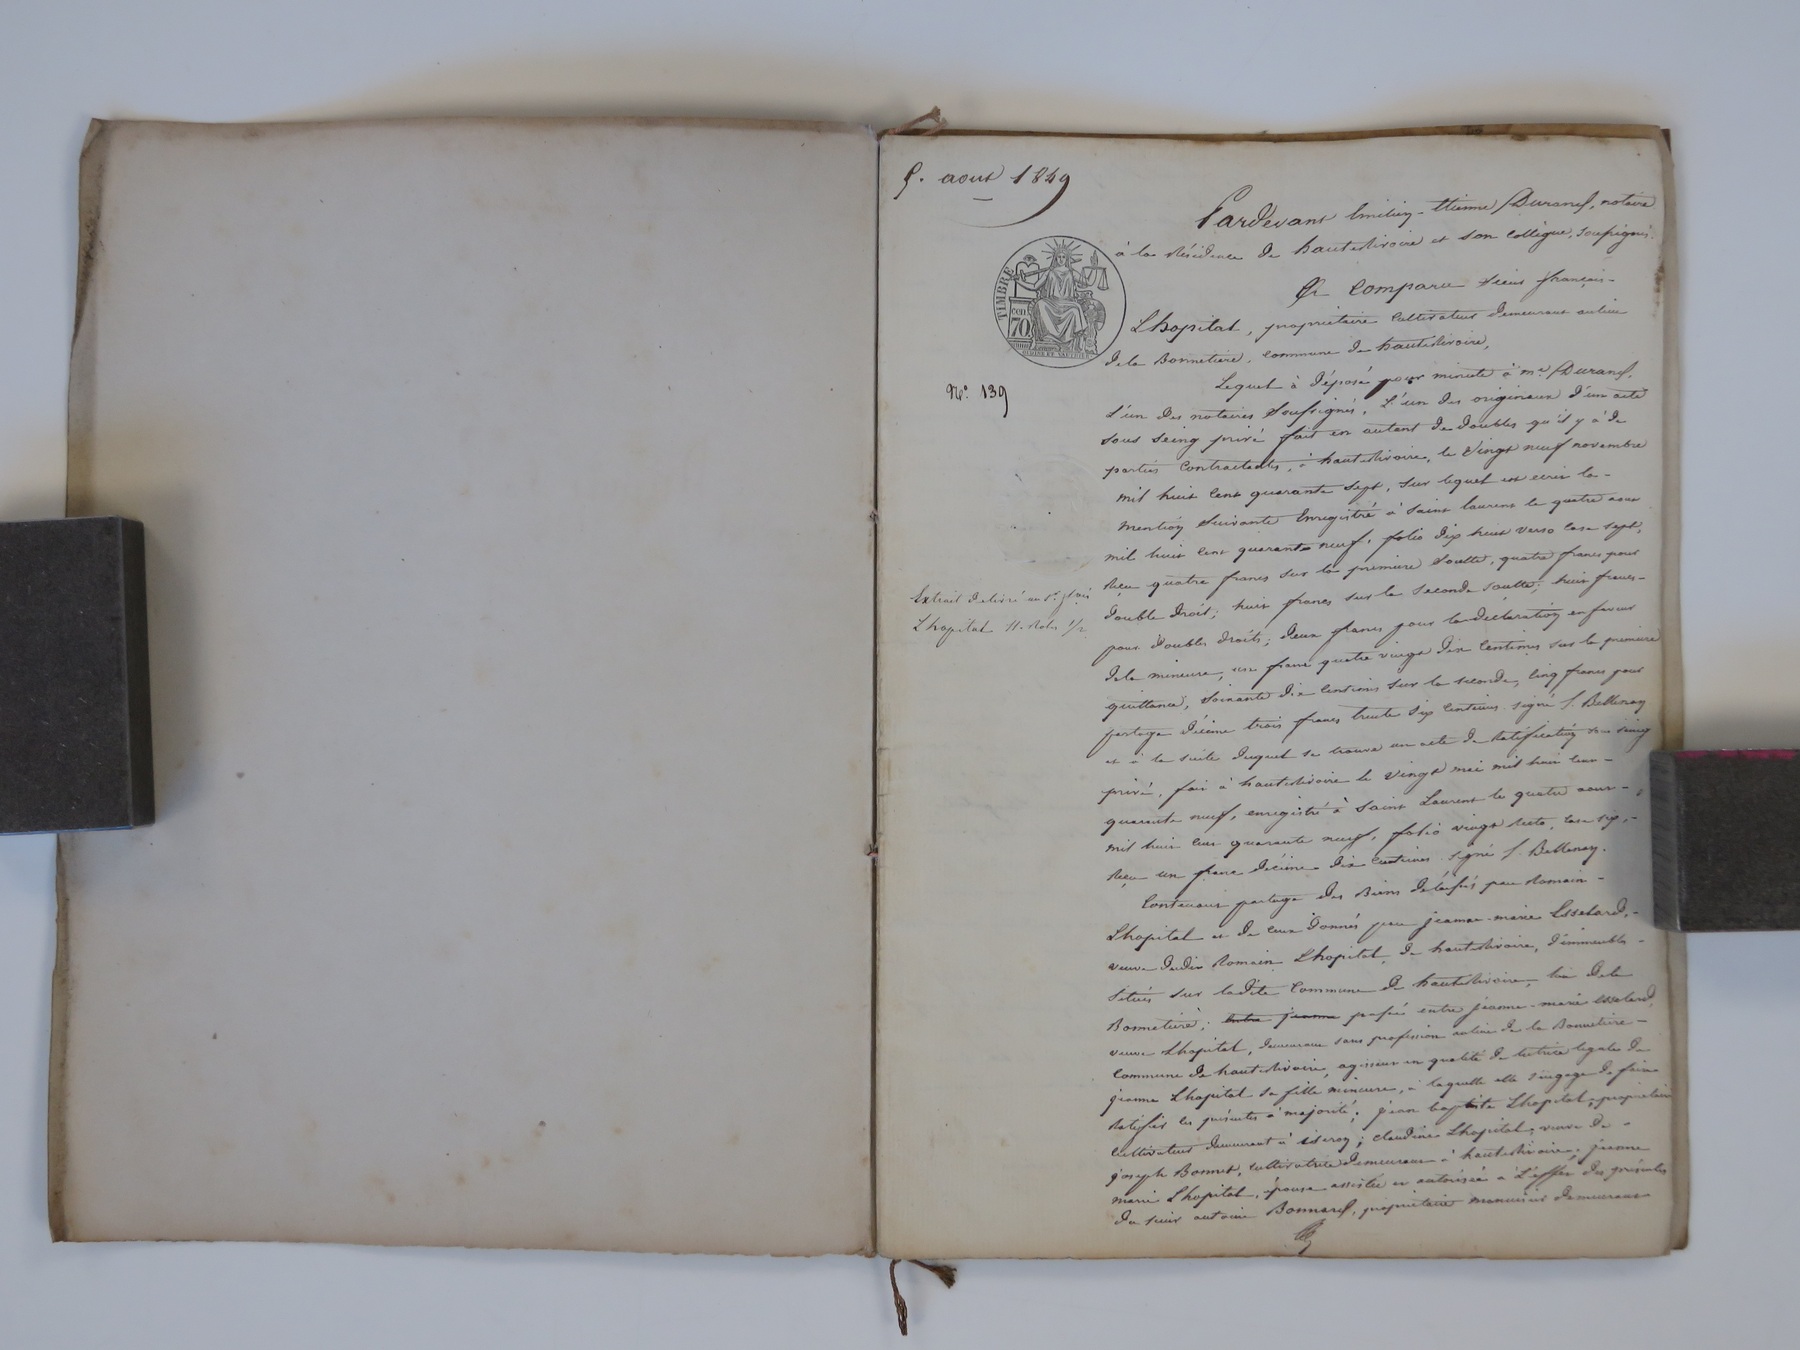 5. aout 1849
Pardevant Emilien-Etienne Durand, notaire
à la Résidence de hauterivoire et son collègue, soussignés.
TIMBRE
CEN
70
Et comparu sieur françois-
Lhopital, propriétaire cultivateur demeurant au lieu
de la Bonnetiere, commune de hauterivoire,
N.° 139
Lequel à déposé pour minute à me Durand,
l'un des notaires soussignés, l'un des originaux d'un acte
sous seing privé fait en autant de doubles qu'il y à de
parties contractantes, à hauterivoire, le vingt neuf novembre
mil huit cent quarante sept, sur lequel est écrit la-
mention suivante Enregistré à saint laurent le quatre aout
mil huit cent quarante neuf, folio dix huit verso case sept,
Reçu quatre francs sur la premiere soulte, quatre francs pour
double droit; huit francs sur la seconde soulte; huit francs-
Extrait delivré au sr
Lhopital 11. Roles 1/2
pour doubles droits; deux francs pour la déclaration en faveur
de la mineure, un franc quatre vingt dix centimes sur la premiere
quittance, soixante dix centimes sur la seconde, cinq francs pour
partage décime trois francs trente six centimes. signé f. Bellenay
et à la suite duquel se trouve un acte de Ratification sous seing
privé, fait à hauterivoire le vingt mai mil huit cent-
quarante neuf, enregistré à Saint Laurent le quatre aout-
mil huit cent quarante neuf, folio vingt Recto, case six,-
Reçu un franc décime dix centimes. signé f. Bellenay.
Contenant partage des Biens délaissés par Romain-
Lhopital et de ceux donnés par jeanne-marie Esselard,-
veuve dudit Romain Lhopital, de hauterivoire, d'immeubles-
situés sur ladite Commune de hauterivoire, lieu de la
Bonnetiere; entre jeanne passés entre jeanne-marie esselard,
veuve Lhopital, demeurant sans profession au lieu de la Bonnetiere-
Commune de hauterivoire, agissant en qualité de tutrice légale de
jeanne Lhopital sa fille mineure, à laquelle elle s'engage de faire
Ratifier les présentes à majorité; jean baptiste Lhopital, propriétaire
cultivateur demeurant à ; claudine Lhopital, veuve de-
joseph Bonnet, cultivatrice demeurant à hauterivoire; jeanne
marie Lhopital, épouse assistée et autorisée à l'effet des présentes
du sieur antoine Bonnard, propriétaire demeurant